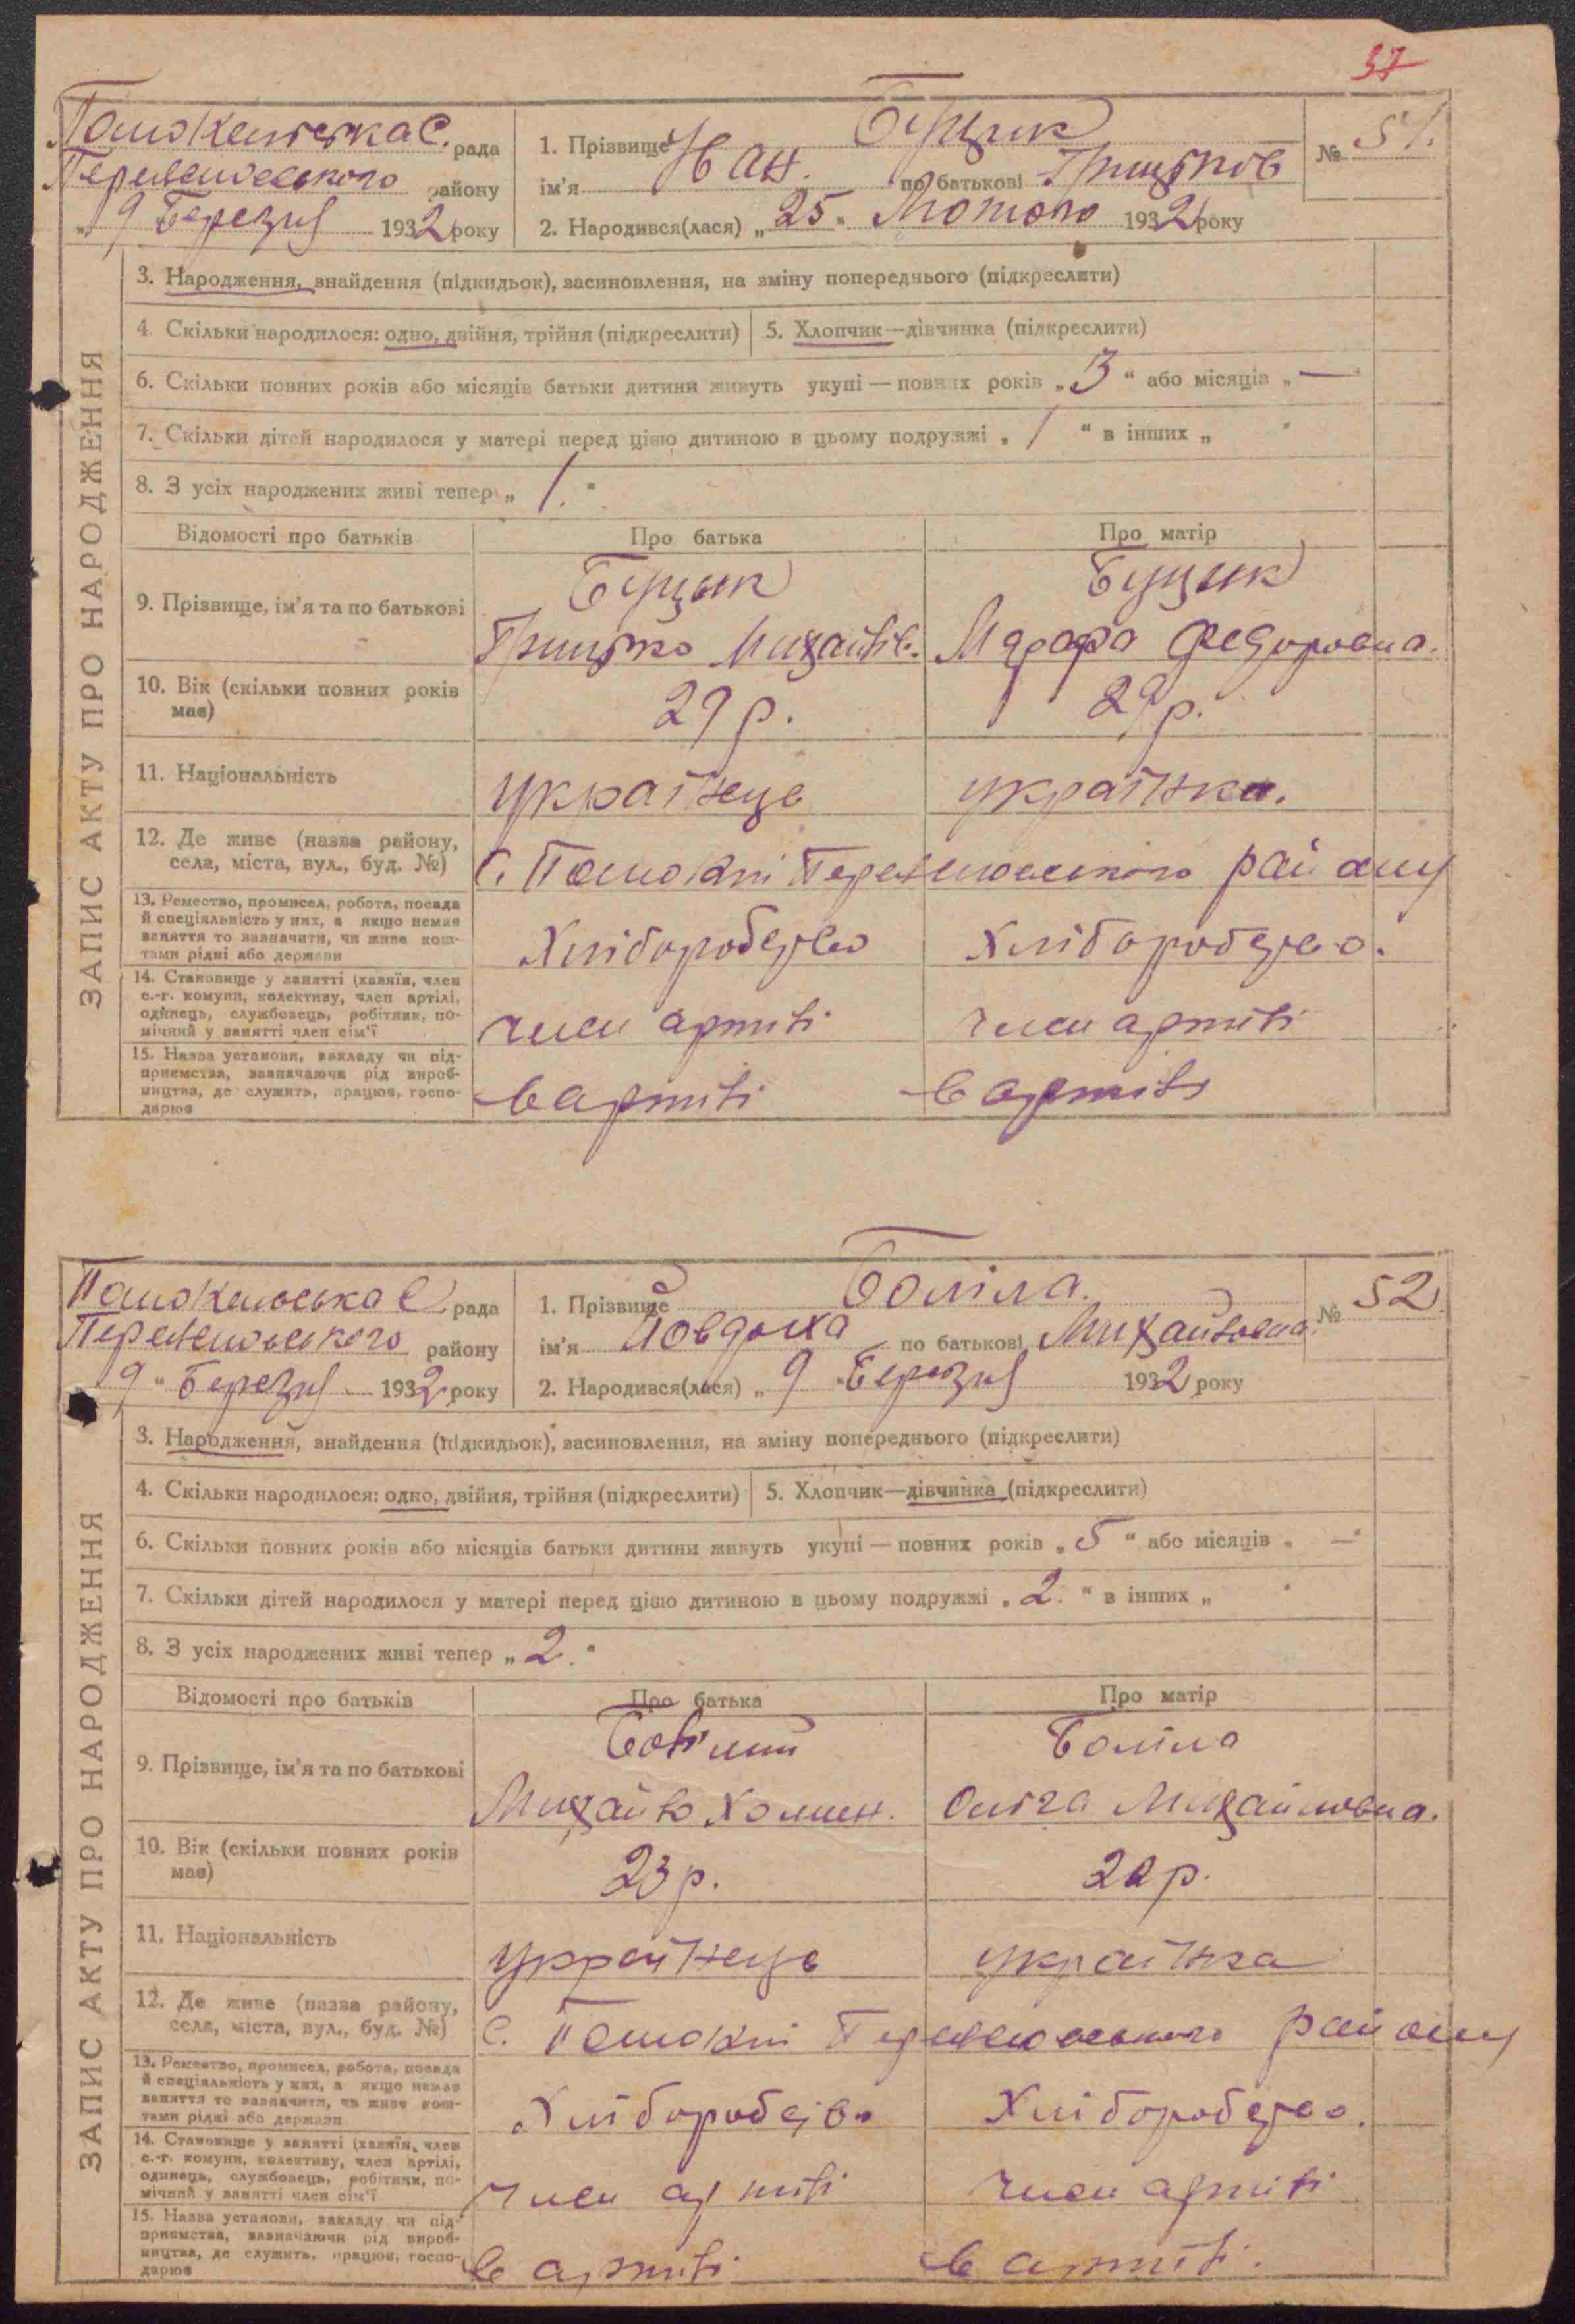 37
рада
району
9 Березня 1932 року
1. Прізвище Буцик
ім'я Іван. по батькові Грицьков
2. Народився(лася) „25“ Лютого 1932 року
№ 51.
ЗАПИС АКТУ ПРО НАРОДЖЕННЯ
3. Народження, знайдення (підкидьок), засиновлення, на зміну попереднього (підкреслити)
4. Скільки народилося: одно, двійня, трійня (підкреслити)
5. Хлопчик—дівчинка (підкреслити)
6. Скільки повних років або місяців батьки дитини живуть укупі — повних років „3“ або місяців „—“
7. Скільки дітей народилося у матері перед цією дитиною в цьому подружжі „1“ в інших „ “
8. З усіх народжених живі тепер „1.“
Відомості про батьків Про батька Про матір
9. Прізвище, ім'я та по батькові
Буцик Буцик
Грицько Михайлів. Федоровна.
10. Вік (скільки повних років має)
29 р. 29 р.
11. Національність
українець українка.
12. Де живе (назва району, села, міста, вул., буд. №)
с. району
13. Ремество, промисел, робота, посада й спеціяльність у них, а якщо немає заняття то зазначити, чи живе коштами рідні або держави
Хліборобство Хліборобство.
14. Становище у занятті (хазяїн, член с.-г. комуни, колективу, член артілі, одинець, службовець, робітник, помічний у занятті член сім'ї
член артілі член артілі
15. Назва установи, закладу чи підприємства, зазначаючи рід виробництва, де служить, працює, господарює
в артілі в артілі
рада
району
9 „ Березня 1932 року
1. Прізвище Боліла.
ім'я Йовдоха по батькові Михайловна.
2. Народився(лася) „9“ Березня 1932 року
№ 52
ЗАПИС АКТУ ПРО НАРОДЖЕННЯ
3. Народження, знайдення (підкидьок), засиновлення, на зміну попереднього (підкреслити)
4. Скільки народилося: одно, двійня, трійня (підкреслити)
5. Хлопчик—дівчинка (підкреслити)
6. Скільки повних років або місяців батьки дитини живуть укупі — повних років „5“ або місяців „—“
7. Скільки дітей народилося у матері перед цією дитиною в цьому подружжі „2.“ в інших „ “
8. З усіх народжених живі тепер „2.“
Відомості про батьків Про батька Про матір
9. Прізвище, ім'я та по батькові
Болілий Боліла
Михайло Хомен. Оліга Михайловна.
10. Вік (скільки повних років має)
23 р. 22 р.
11. Національність
українець українка
12. Де живе (назва району, села, міста, вул., буд. №)
с. району
13. Ремество, промисел, робота, посада й спеціяльність у них, а якщо немає заняття то зазначити, чи живе коштами рідні або держави
Хліборобство Хліборобство.
14. Становище у занятті (хазяїн, член с.-г. комуни, колективу, член артілі, одинець, службовець, робітник, помічний у занятті член сім'ї
член артілі член артілі
15. Назва установи, закладу чи підприємства, зазначаючи рід виробництва, де служить, працює, господарює
в артілі в артілі.